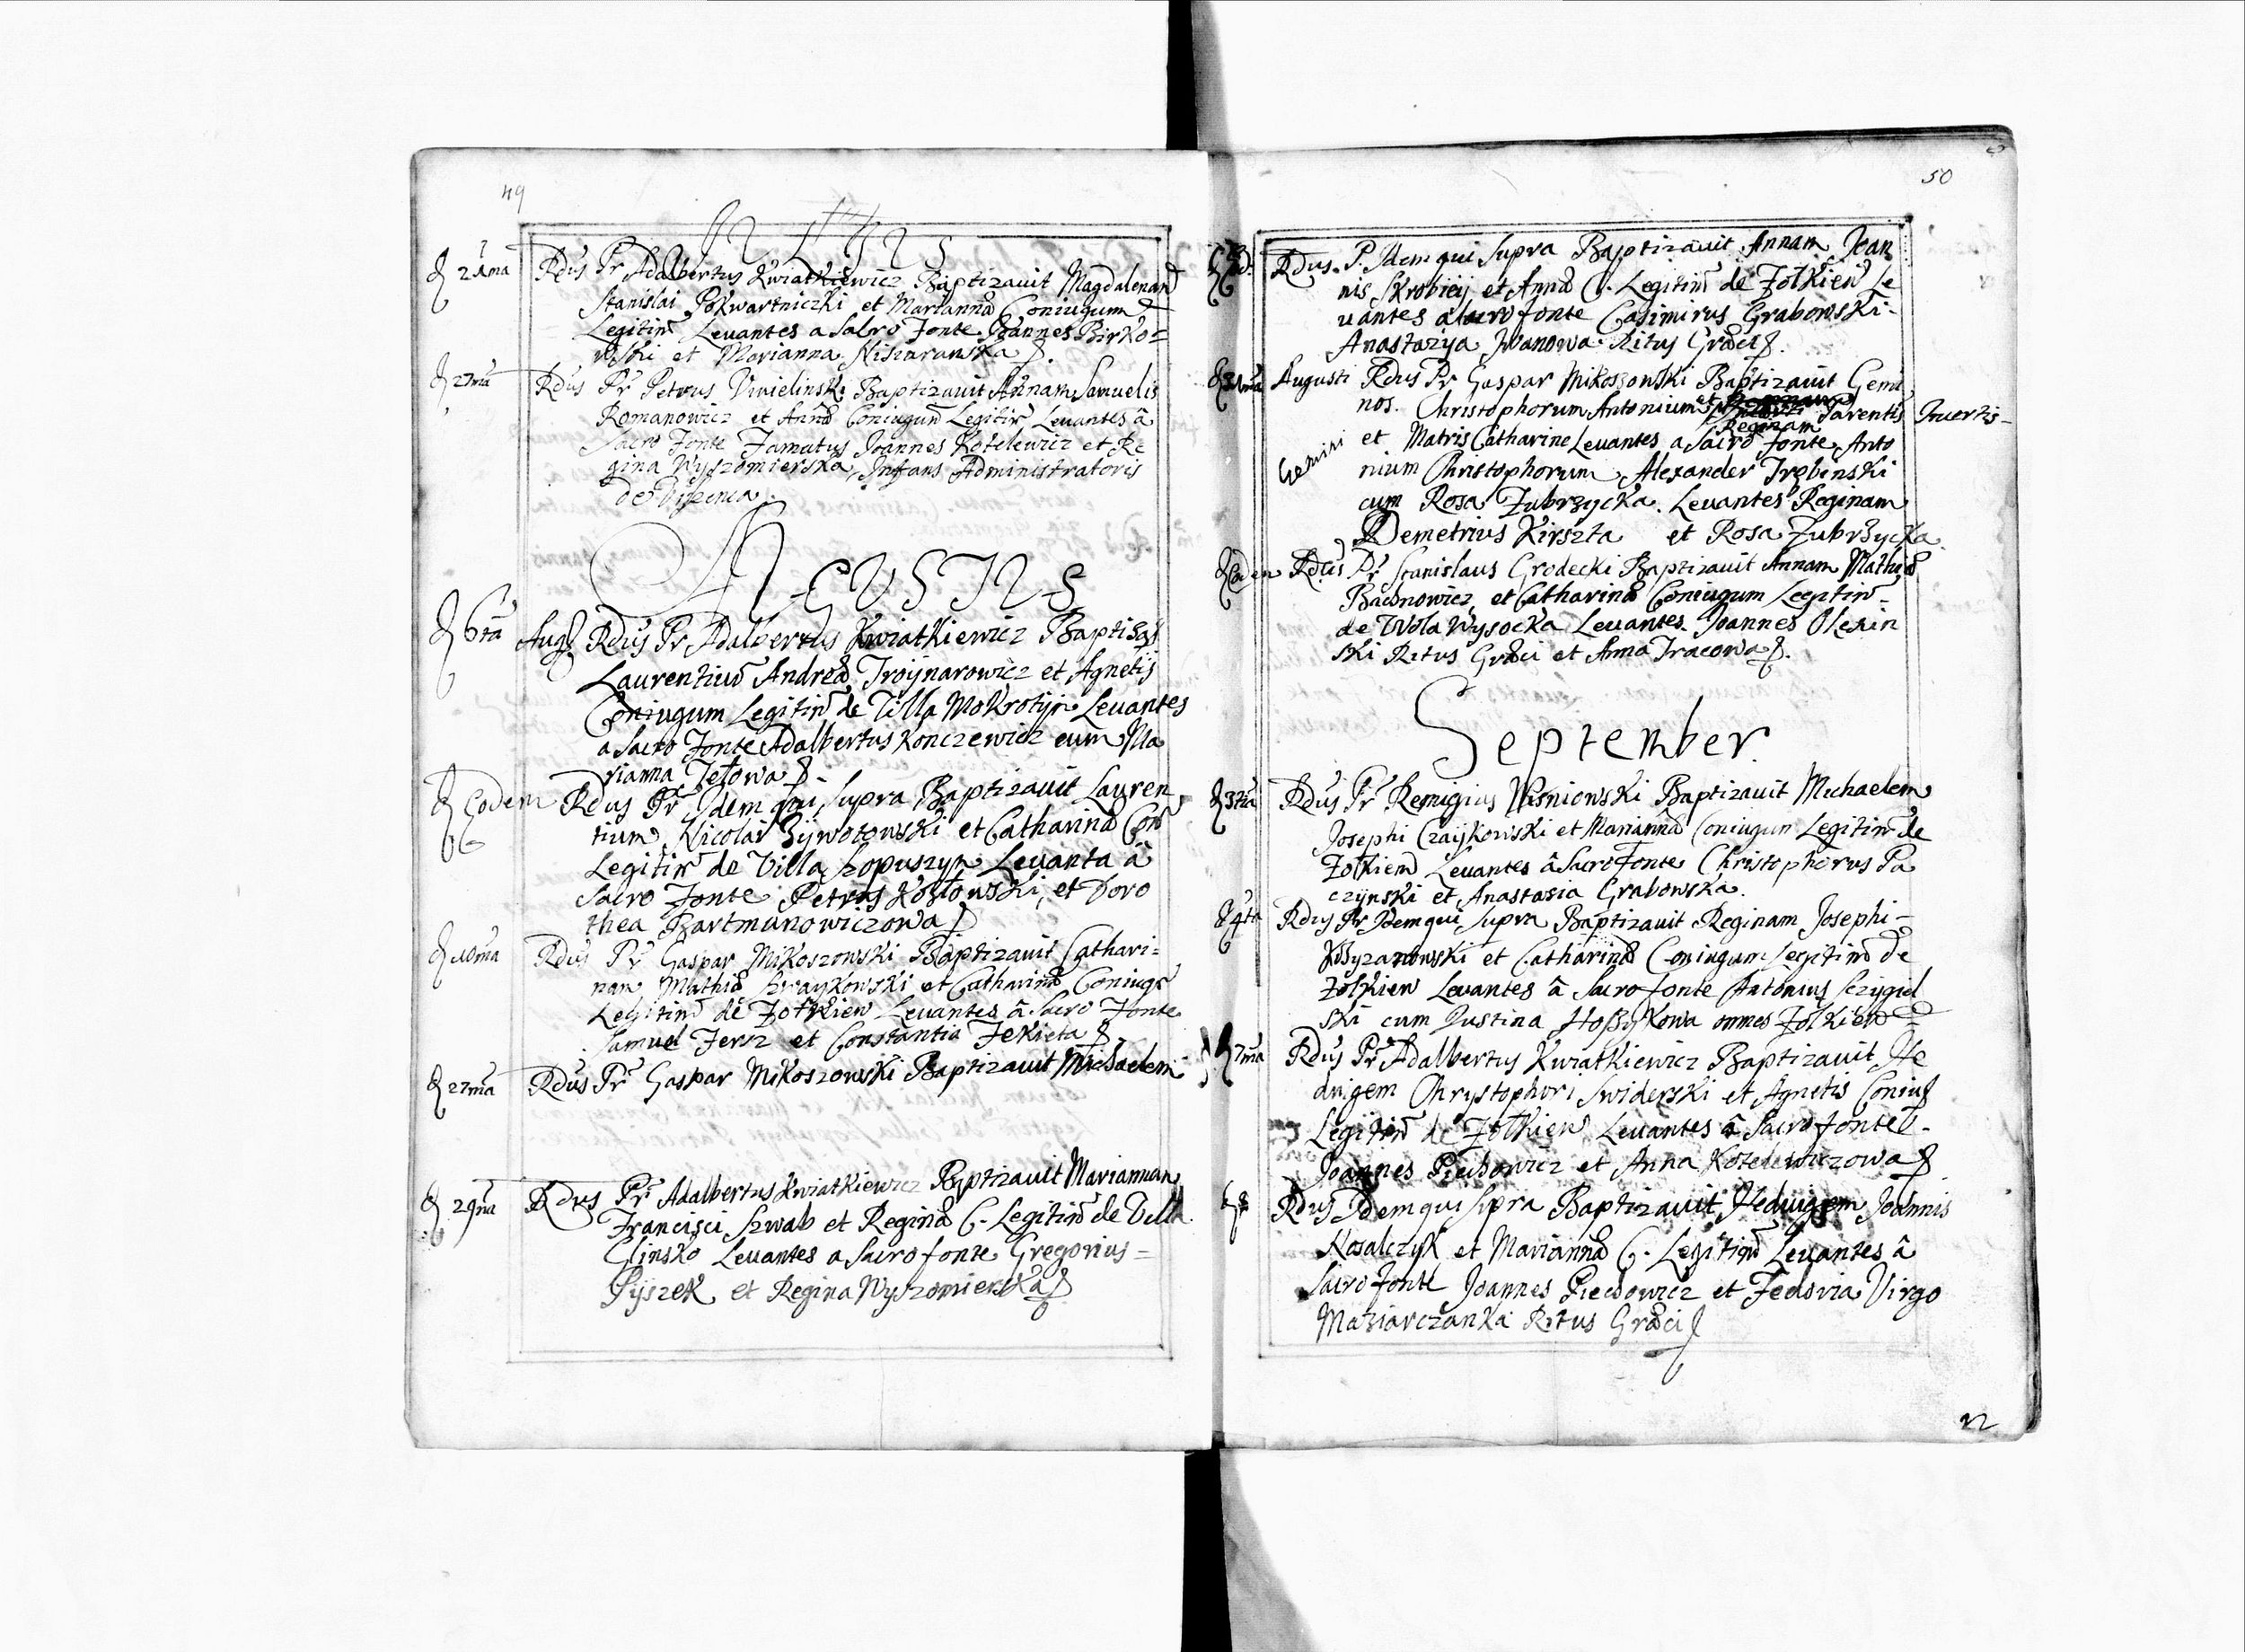 49
Julius
D 21ma Rdus Pr Adalbertus Kwiatkiewicz Baptizauit Magdalenam
Stanislai Pokwartniczki et Marianna Coniugum
Legitim Leuantes a Sacro Fonte Joannes Birko=
wski et Marianna
D 27ma Rdus Pr Petrus Baptizauit Annam Samuelis
Romanowicz et Anna Coniugum Legitim Leuantes â
Sacro Fonte Famatus Joannes Kotelewicz et Re
gina Wyszomierska, Infans Administratoris
de
Augustus
D 6ta Aug Rdus Pr Adalbertus Kwiatkiewicz Baptizat
Laurentium Andrea Troynarowicz et Agnetis
Coniugum Legitim de Villa Mokrotyn Leuantes
a Sacro Fonte Adalbertus Konczewicz cum Ma
rianna
D Eodem Rdus Pr Idem qui Supra Baptizauit Lauren
tium Nicolai Zywotowski et Catharina Con
Legitim de Villa Lopuszyn Leuanta â
Sacro Fonte Petrus Kozłowski, et Doro
thea Bartmanowiczowa
D 10ma Rdus Pr Gaspar Mikoszowski Baptizauit Cathari=
nam Mathia et Catharina Coniugu
Legitim de Zołkiew Leuantes â Sacro Fonte
Samuel Fersz et Constantia Fekieta
D 27ma Rdus Pr Gaspar Mikoszowski Baptizauit Michaelem
D 29na Rdus Pr Adalbertus Kwiatkiewicz Baptizauit Mariannam
Francisci Szwab et Regina C. Legitim de Villa
Glinsko Leuantes a Sacro fonte Gregorius =
Pyszek et Regina Wyszomierska
50
Rdus. P. Idem qui Supra Baptizauit Annam Joan
nis et Anna C. Legitim de Zolkiew Le
uantes a Sacro fonte Casimirus Grabowski-
Anastazya Iwanowa Ritus Græci
D 31ma Augusti Rdus Pr Gaspar Mikoszowski Baptizauit Gemi
nos. Christophorum Antonium et Reginam Parentis Incertis-
Gemini et Matris Catharine Leuantes a Sacro fonte Anto
nium Christophorum Alexander Trębinski
cum Rosa Zubrzycka. Leuantes Reginam
Demetrius Kirszta et Rosa Zubrzycka
D Eodem Rdus Pr Stanislaus Grodecki Baptizauit Annam Mathiæ
Baconowicz et Catharina Coniugum Legitim
de Wola Wysocka Leuantes Joannes Olexin
ski Ritus Græci et Anna Tracowa
September
D 3tia Rdus Pr Remigius Wisniowski Baptizauit Michaelem
Josephi Czaykowski et Marianna Coniugum Legitim de
Zolkiew Leuantes â Sacro Fonte Christophorus Pa
czynski et Anastasia Grabowska
D 4ta Rdus Pr Idem qui Supra Baptizauit Reginam Josephi-
Krzyzanowski et Catharina Coniugum Legitim de
Zołkiew Leuantes â Sacro fonte Antonius Sczygiel
ski cum Justina omnes Zolkiew
D 7ma Rdus Pr Adalbertus Kwiatkiewicz Baptizauit He
duigem Chrystophori Swiderski et Agnetis Coniug
Legitim de Zołkiew Leuantes â Sacro fonte
Joannes Piechowicz et Anna Kotelewiczowa
Rdus Idem qui Supra Baptizauit Heduigem Joannis
Kosalczyk et Marianna C. Legitim Leuantes â
Sacro fonte Joannes Piechowicz et Fedovia Virgo
Maziarczanka Ritus Græci
22